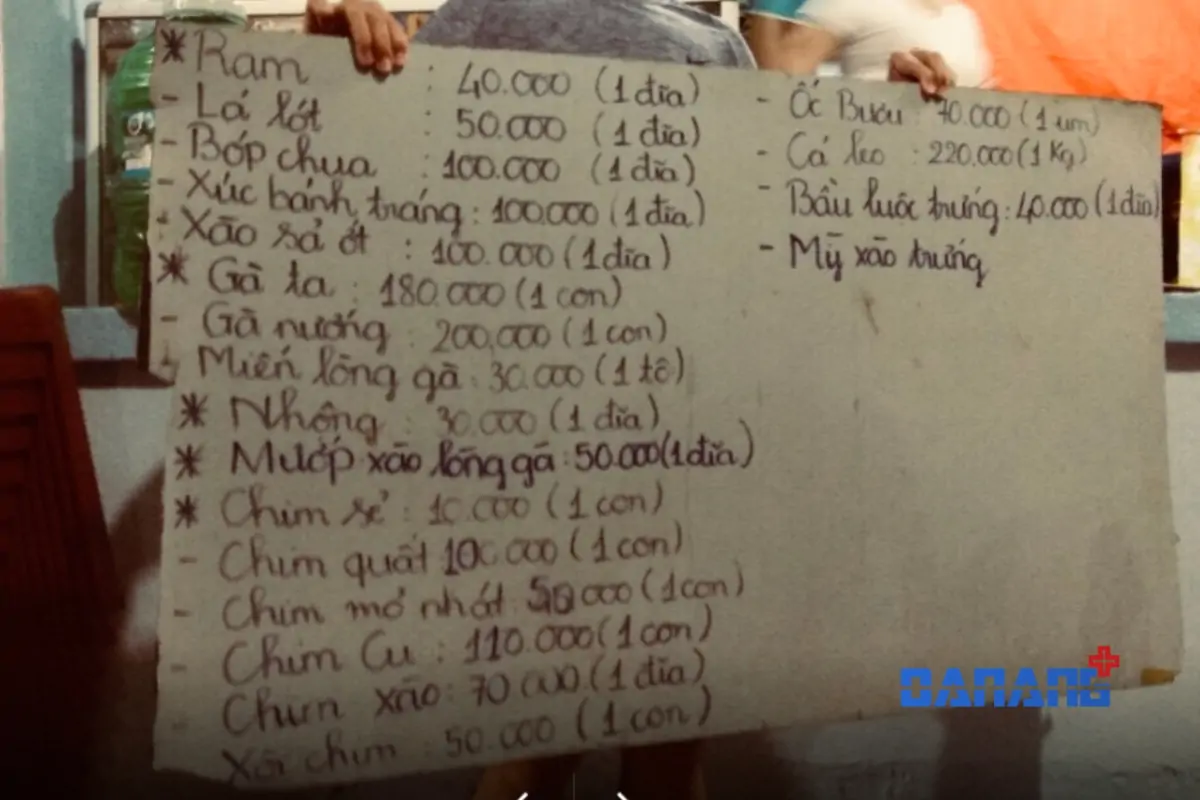 * Ram : 40.000 (1 đĩa)
- Lá lốt : 50.000 (1 đĩa)
- Bóp chua : 100.000 (1 đĩa)
- Xúc bánh tráng : 100.000 (1 đĩa)
- Xão sả ớt : 100.000 (1 đĩa)
* Gà ta : 180.000 (1 con)
- Gà nướng : 200.000 (1 con)
- Miến lòng gà : 30.000 (1 tô)
* Nhộng : 30.000 (1 đĩa)
* Mướp xão lòng gà : 50.000 (1 đĩa)
* Chim sẻ : 10.000 (1 con)
- Chim quất 100.000 (1 con)
- Chim mỏ nhát 50.000 (1 con)
- Chim Cu : 110.000 (1 con)
- Chim xão : 70.000 (1 đĩa)
Xôi chim : 50.000 (1 con)
- Ốc Bươu : 70.000 (1 um)
- Cá leo : 220.000 (1 Kg)
- Bầu luộc trứng : 40.000 (1 đĩa)
- Mỹ xão trứng
DANANG